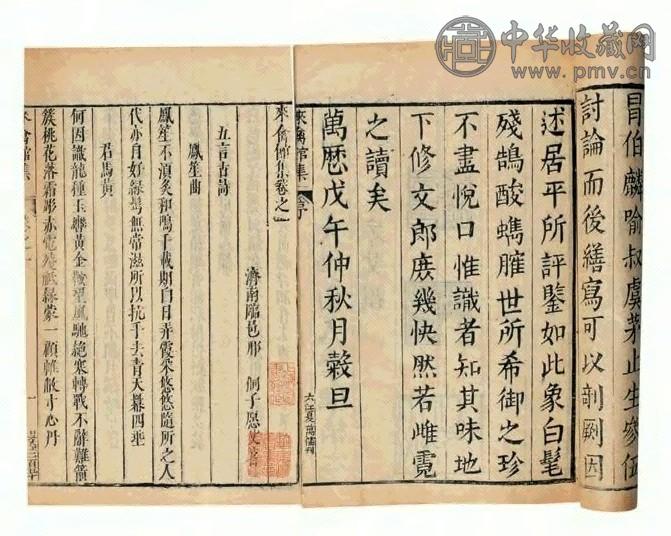 中华收藏网
www.pmv.cn
冒伯麟喻叔虞茅止生參伍
討論而後繕寫可以剞劂因
述居平所評鑒如此象白髦
殘鵠酸蠵臛世所希御之珍
不盡悅口惟識者知其味地
下修文郎庶幾快然若雌霓
之讀矣
萬曆戊午仲秋月穀旦
來禽館集 序
來禽館集卷之一
濟南臨邑邢 侗子愿父著
五言古詩
鳳笙曲
鳳笙不須炙和鳴千載期自日弄霞采悠悠隨所之人
代亦自好綠髩無常滋所以抗手去青天幕四垂
君馬黃
何因識龍種玉轡黃金鞍望風馳絕塞轉戰不辭難箭
簇桃花落霜彫赤電殘祇緣蒙一顧帷敝寸心丹